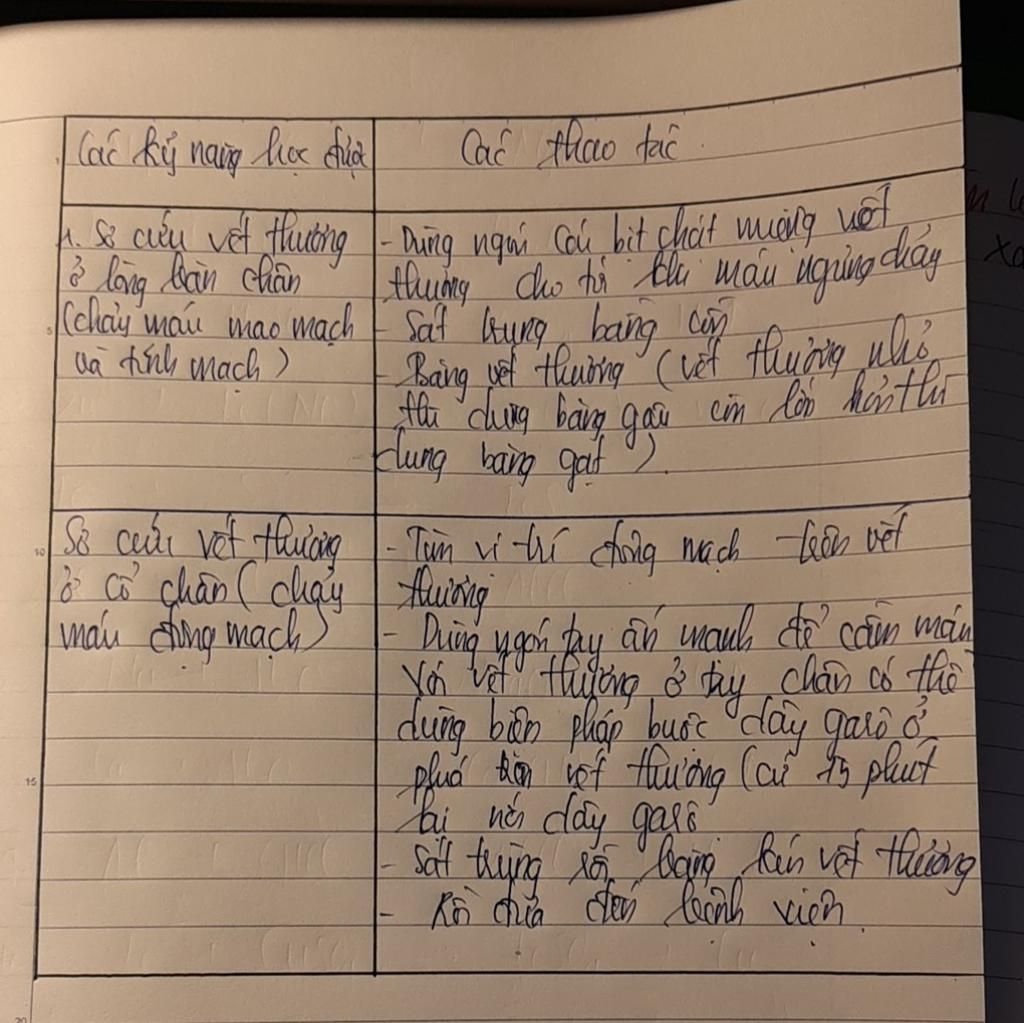 Các kỹ năng học được
Các thao tác.
1. Sơ cứu vết thương
ở lòng bàn chân
(chảy máu mao mạch
và tĩnh mạch)
- Dùng ngón cái bịt chặt miệng vết
thương cho tới khi máu ngừng chảy
- Sát trùng bằng cồn
- Băng vết thương (vết thương nhỏ
thì dùng băng gâu còn lớn hơn thì
dùng băng gạt).
Sơ cứu vết thương
ở cổ chân (chảy
máu động mạch)
- Tìm vị trí động mạch trên vết
thương
- Dùng ngón tay ấn mạnh để cầm máu
Với vết thương ở tay chân có thể
dùng biện pháp buộc dây garô ở
phía trên vết thương (cứ 15 phút
lại nới dây garô
- Sát trùng rồi băng kín vết thương
- Rồi đưa đến bệnh viện.